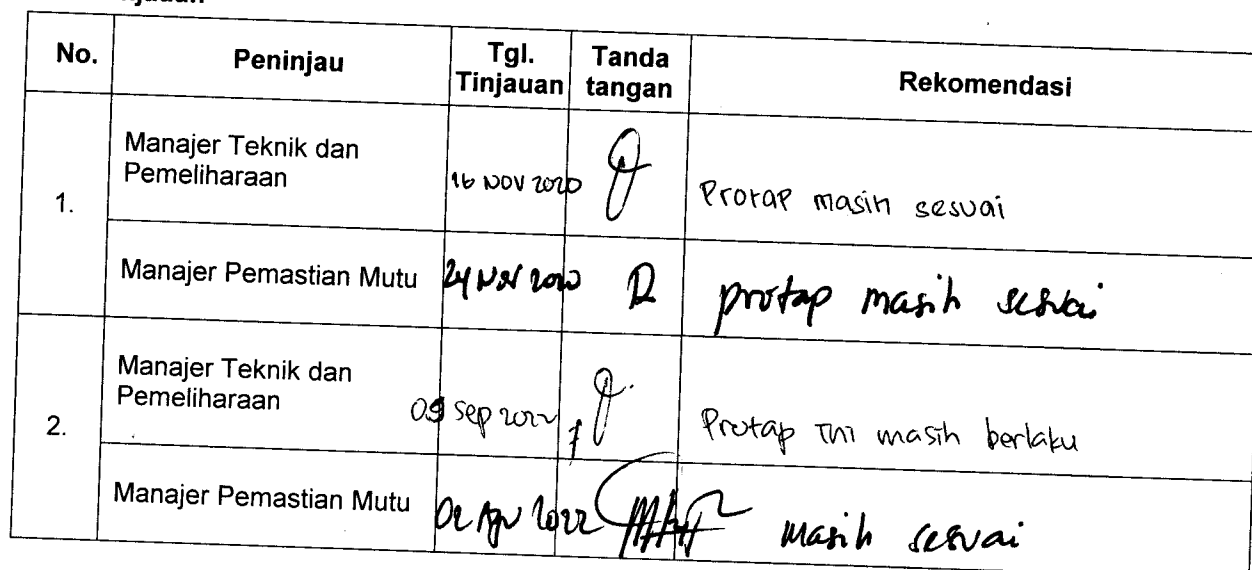 No. Peninjau Tgl. Tinjauan Tanda tangan Rekomendasi
1.
Manajer Teknik dan
Pemeliharaan
16 NOV 2020
Protap masih sesuai
Manajer Pemastian Mutu 24 Nov 2020 protap masih sesuai
2.
Manajer Teknik dan
Pemeliharaan
Sep 2022
Protap ini masih berlaku
Manajer Pemastian Mutu 02 Agu 2022 masih sesuai